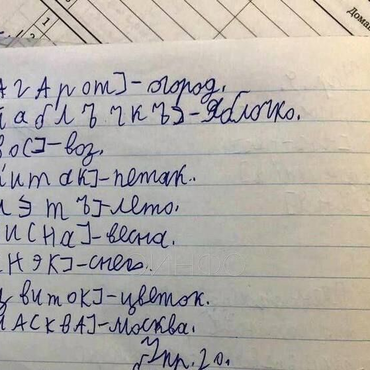 Дома
1
2
агарот]-огород.
йаблъчкъ]-Яблочко.
вос]-воз.
питак]-петак.
лэтъ]-лето.
висна]-весна.
снэк]-снег.
цвиток]-цветок.
масква]-москва.
Упр. 20.